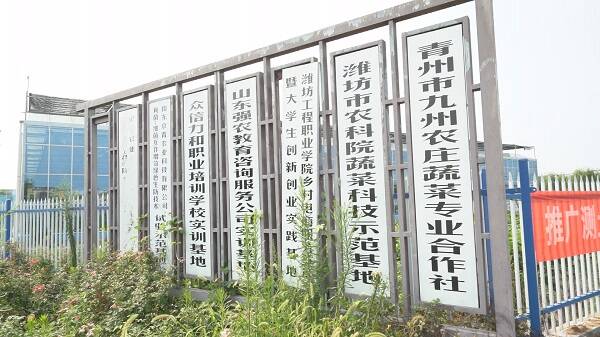 青州市九州农庄蔬菜专业合作社
潍坊市农科院蔬菜科技示范基地
潍坊工程职业学院乡村
暨大学生创新创业实践基地
山东强农教育咨询服务公司实训基地
众信力和职业培训学校实训基地
山东京青农业科技有限公司
试验示范基地
推广测